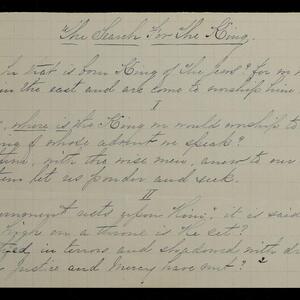 "The Search For The King.
that is born King of the Jews? for we
in the east and are come to worship him
I
where is the King we would worship to
of whose advent we speak?
with the wise men, anew to our
let us ponder and seek.
II
rests upon Him", it is said
high on a throne is He set?
in terrors and shadowed with
Justice and Mercy have met? 2